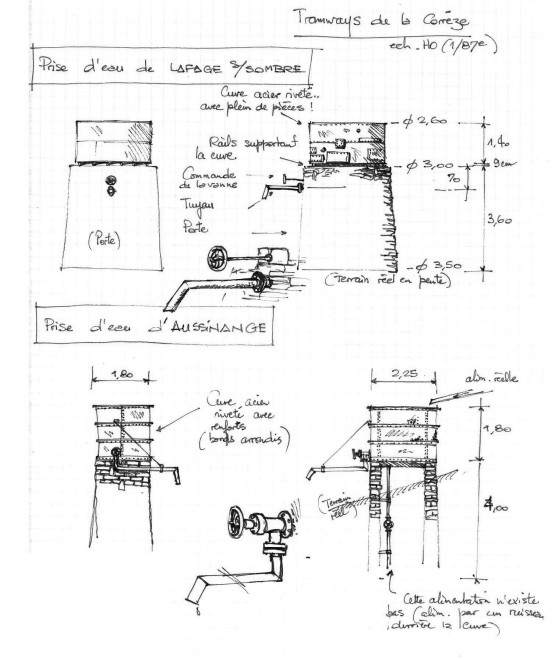 Tramways de la Corrèze
ech. HO (1/87e)
Prise d'eau de LAFAGE S/SOMBRE
Cuve acier riveté..
avec plein de pièces !
Rails supportant
la cuve.
Commande
de la vanne
Tuyau
Porte
(Porte)
φ 2,60
1,40
φ 3,00
9cm
70
3,60
φ 3,50
(Terrain réel en pente)
Prise d'eau d'AUSSINANGE
1,80
Cuve acier
riveté avec
renforts
(bords arrondis)
2,25
alim. réelle
1,80
(Terrain
réel)
4,00
Cette alimentation n'existe
pas (alim. par un ruisseau
derrière la cuve)